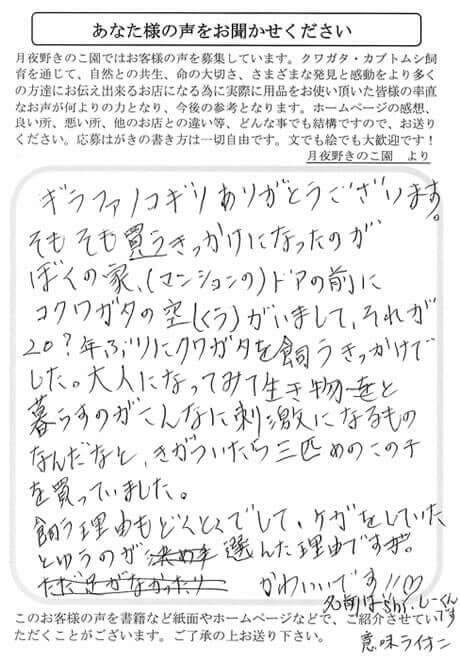 あなた様の声をお聞かせください
月夜野きのこ園ではお客様の声を募集しています。クワガタ・カブトムシ飼
育を通じて、自然との共生、命の大切さ、さまざまな発見と感動をより多く
の方達にお伝え出来るお店になる為に実際に用品をお使い頂いた皆様の率直
なお声が何よりの力となり、今後の参考となります。ホームページの感想、
良い所、悪い所、他のお店との違い等、どんな事でも結構ですので、お送り
ください。応募はがきの書き方は一切自由です。文でも絵でも大歓迎です！
月夜野きのこ園　より
ギラファノコギリありがとうございます。
そもそも買うきっかけになったのが
ぼくの家、(マンションの)ドアの前に
コクワガタの空(くう)がいまして、それが
20?年ぶりにクワガタを飼うきっかけで
した。大人になってみて生き物と
暮らすのがこんなに刺激になるもの
なんだなと、きがついたら三匹めのこの子
を買っていました。
飼う理由もどくとくでして、ケガをしていた
とゆうのが選んだ理由ですが。
ただ足がなかったり
かわいいです!!♡
名前は しーくん
です
意味ライオン
このお客様の声を書籍など紙面やホームページなどで、ご紹介させてい
ただくことがございます。ご了承の上お送り下さい。